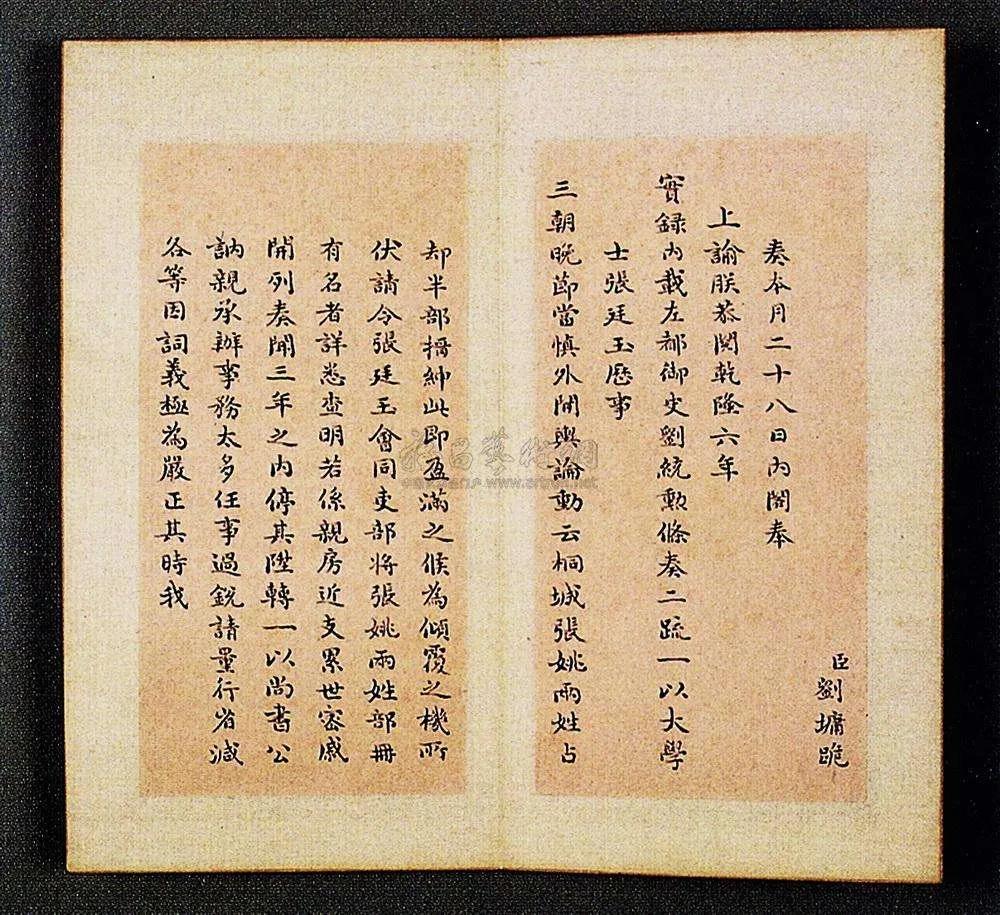 臣劉墉跪
奏本月二十八日內閣奉
上諭朕恭閱乾隆六年
實錄內載左都御史劉統勳條奏二疏一以大學
士張廷玉歷事
三朝晚節當慎外間輿論動云桐城張姚兩姓占
却半部搢紳此即盈滿之候為傾覆之機所
伏請令張廷玉會同吏部將張姚兩姓部冊
有名者詳悉查明若係親房近支累世密戚
開列奏聞三年之內停其陞轉一以尚書公
訥親承辦事務太多任事過銳請量行省減
各等因詞義極為嚴正其時我
www.artron.net